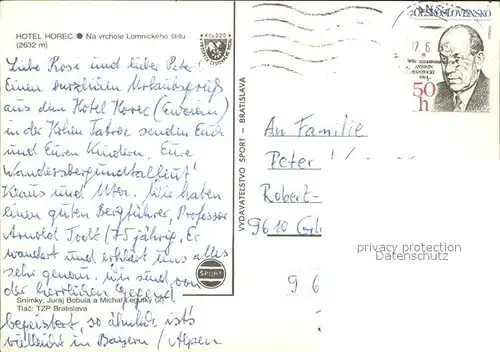 HOTEL HOREC ● Na vrchole Lomnického štítu
(2632 m)
Liebe Rose und lieber Peter!
Einen herzlichen Urlaubsgruß
aus dem Hotel Horec (Enzian)
in der Hohen Tatra senden Euch
und Euren Kindern. Eure
Klaus und Wir haben
einen guten Bergführer, Professor
Arnold 75 jährig. Er
wandert und erklärt uns alles
sehr genau. Wir sind von
der herrlichen Gegend
begeistert, so ähnlich ist's
vielleicht in Bayern / Alpen
Snímky: Juraj Bobula a Michal Legutký (2)
Tlač: TZP Bratislava
VYDAVATEĽSTVO ŠPORT – BRATISLAVA
ŠPORT
ČESKOSLOVENSKO
ANTONÍN
ZÁPOTOCKÝ
50
h
17. 6
An Familie
Peter
Robert-
9610
privacy protection
watermark
9 6